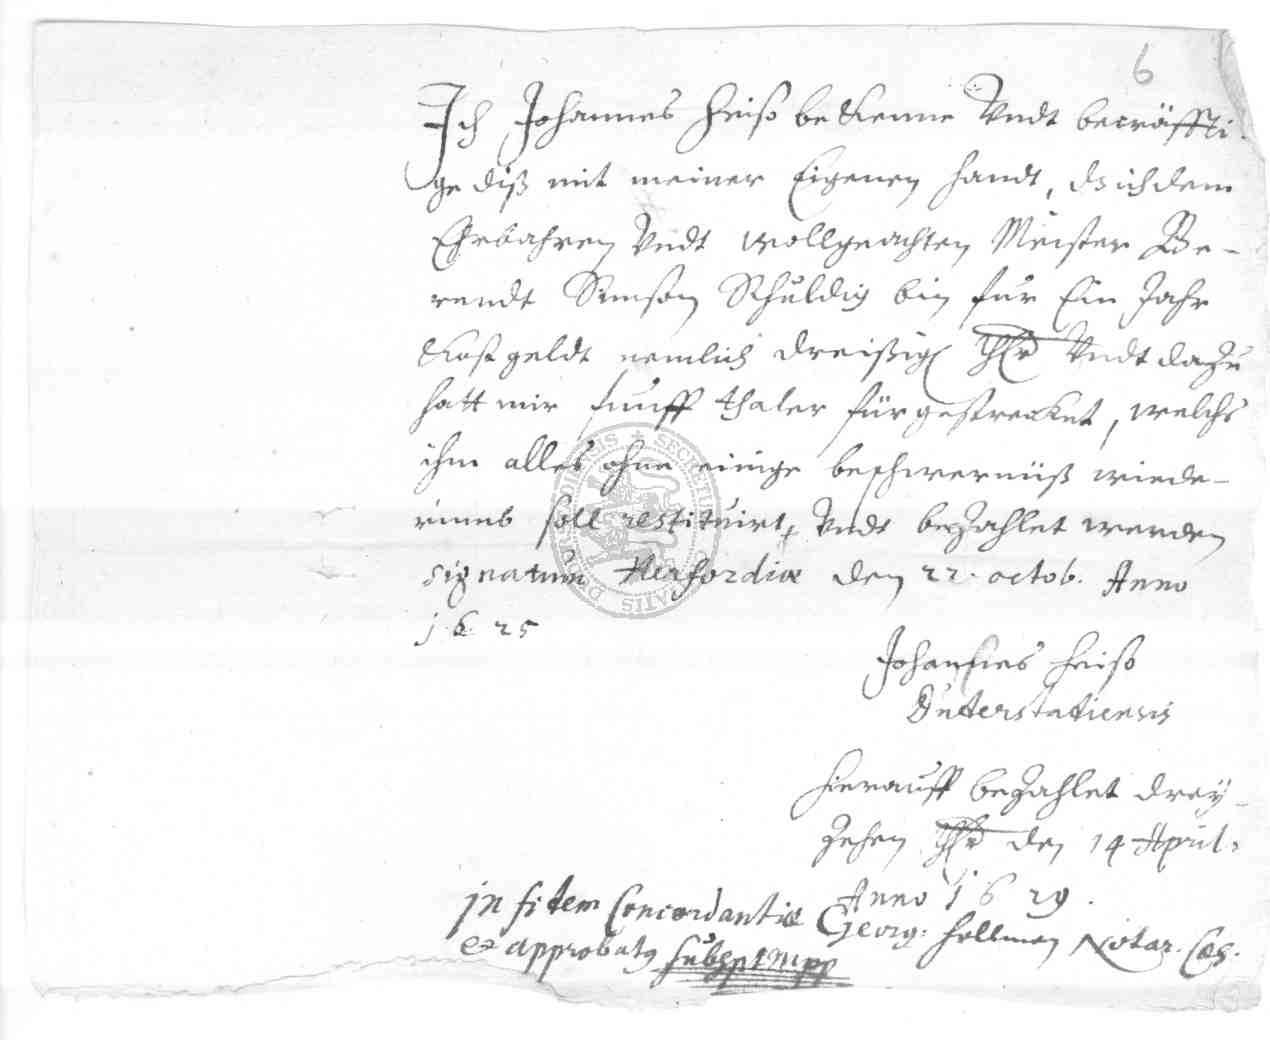 6
Ich Johannes Heiso bekenne Vndt becräffti-
ge diß mit meiner Eigenen handt, ds ich dem
Ehrbahren Vndt wollgeachten Meister Be-
rendt Simson Schuldig bin für Ein Jahr
Kostgeldt nemlich dreißig Thlr Vndt dazu
hatt mir funff thaler fürgestrecket, welchs
ihm alles ohne einige beschwernüß wiede-
rumb soll restituirt, Vndt bezahlet werden
signatum Herfordiæ den 22. octob. Anno
1625
Johannes Heiso
Hierauff bezahlet drey-
zehen Thlr den 14 April.
Anno 1629.
in fidem Concordantiæ Georg: Hellman Notar. Cæs.
et approbatg subspt mpp
SECRETUM